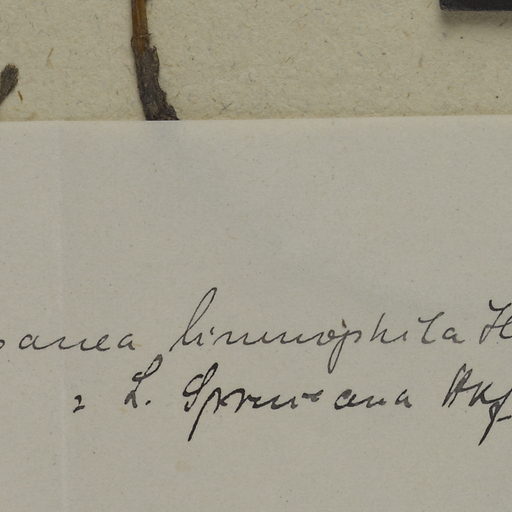 sanea limnophila H
= L. Spruceana Hkf